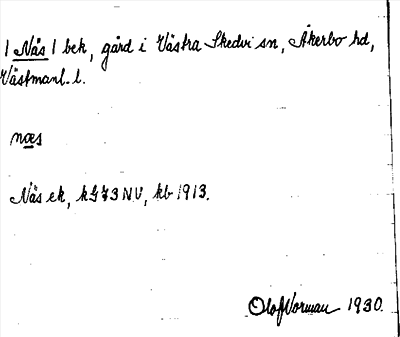 / Näs / bek, gård i Västra Skedvi sn, Åkerbo hd,
Västmanl. l.
næs
Näs ek, kG73NV, kb 1913.
Olof Norman 1930.